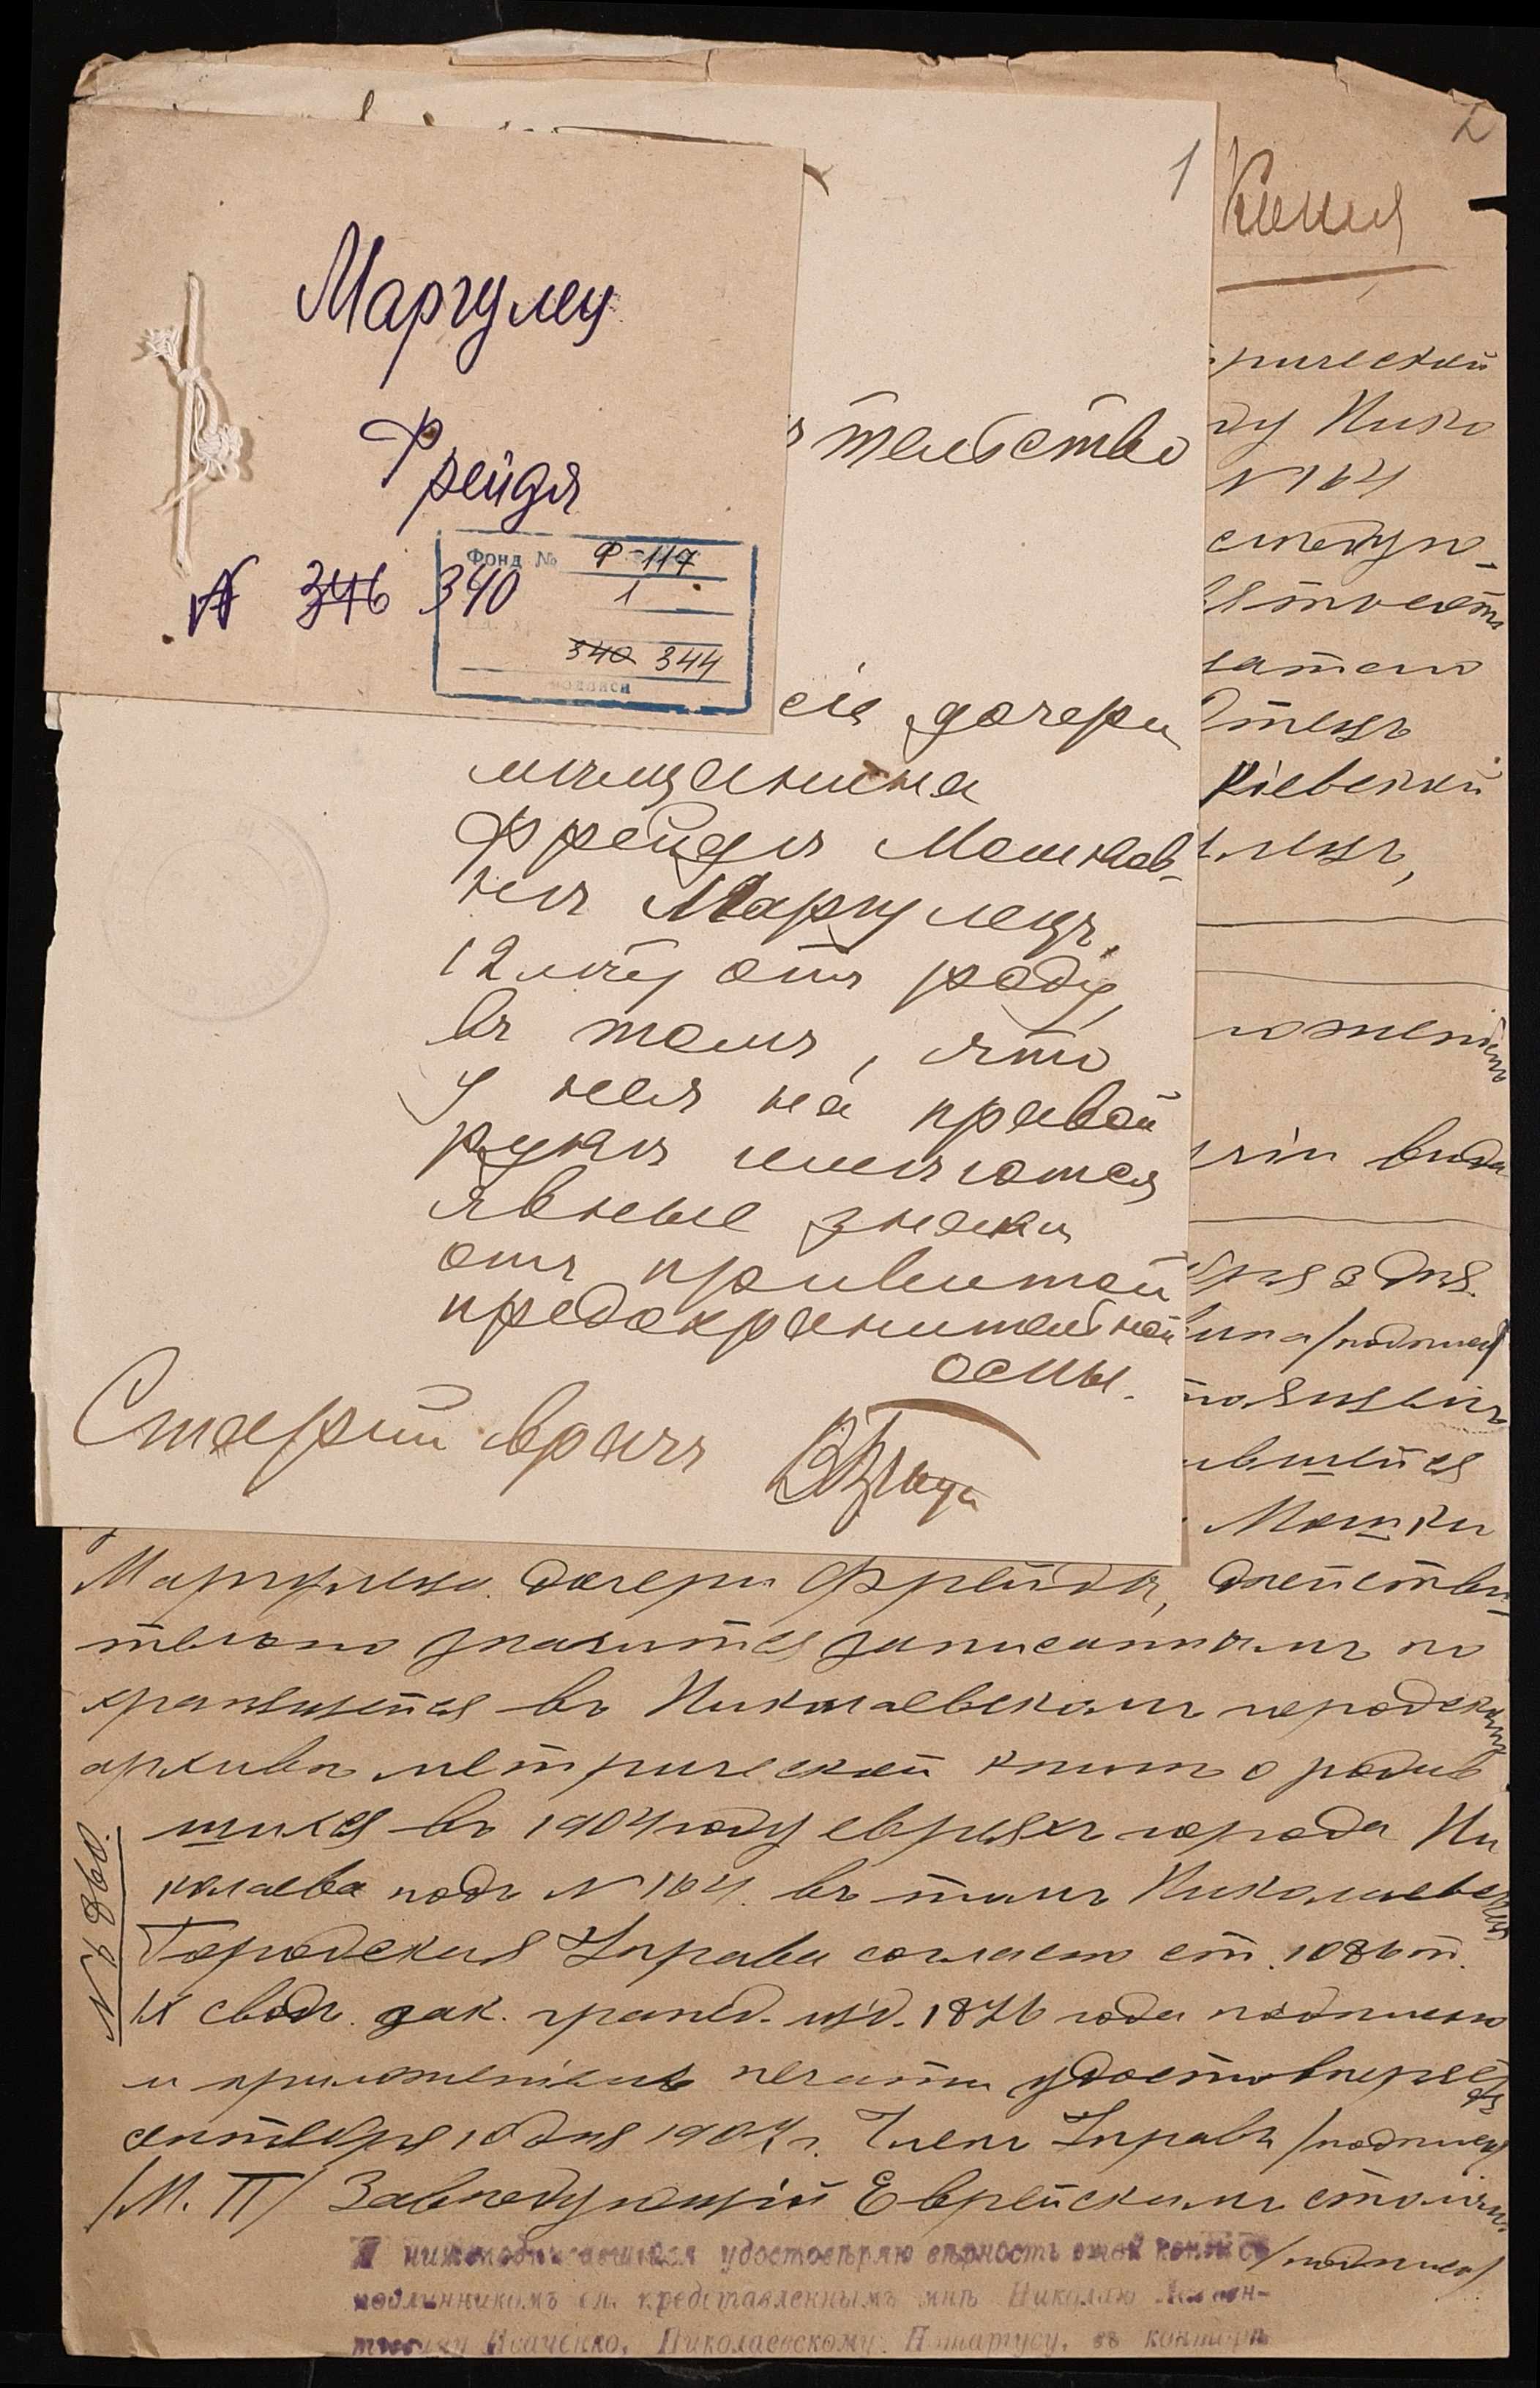 Маргулец
Фрейдя
N 346 340
Фонд № Ф-117
1
340 344
подписи
1
тельство
сіе дочери
мѣщанина
Фрейдѣ Мошков-
нѣ Маргулецъ,
12 лѣтъ отъ роду,
въ томъ, что
у нея на правой
рукѣ имѣются
явные знаки
отъ привитой
предохранительной
оспы.
Старшій врачъ
2
Копия
рической
ду Нико
N 164
слѣдую-
Отецъ
Кіевской
лецъ,
вида
дня.
/подпись/
Мошки
Маргулеца дочери Фрейды, дѣйстви-
тельно значится записаннымъ по
хранящейся въ Николаевскомъ городском
архивѣ метрической книгѣ о родив
шихся въ 1904 году евреяхъ города Ни
колаева подъ N 164. въ томъ Николаевская
Городская Управа согласно ст. 1086 т.
IX свод. зак. гражд. изд. 1876 года подписью
и приложеніемъ печати удостовѣряетъ
сентября 10 дня 1904 г. Членъ Управы /подпись/
/М. П/ Завѣдующій Еврейскимъ столомъ
/подпись/
N 6 860.
Я нижеподписавшійся удостовѣряю вѣрность этой копіи съ
подлинникомъ ея, представленнымъ мнѣ Николаю
Исаченко, Николаевскому Нотаріусу, въ конторѣ